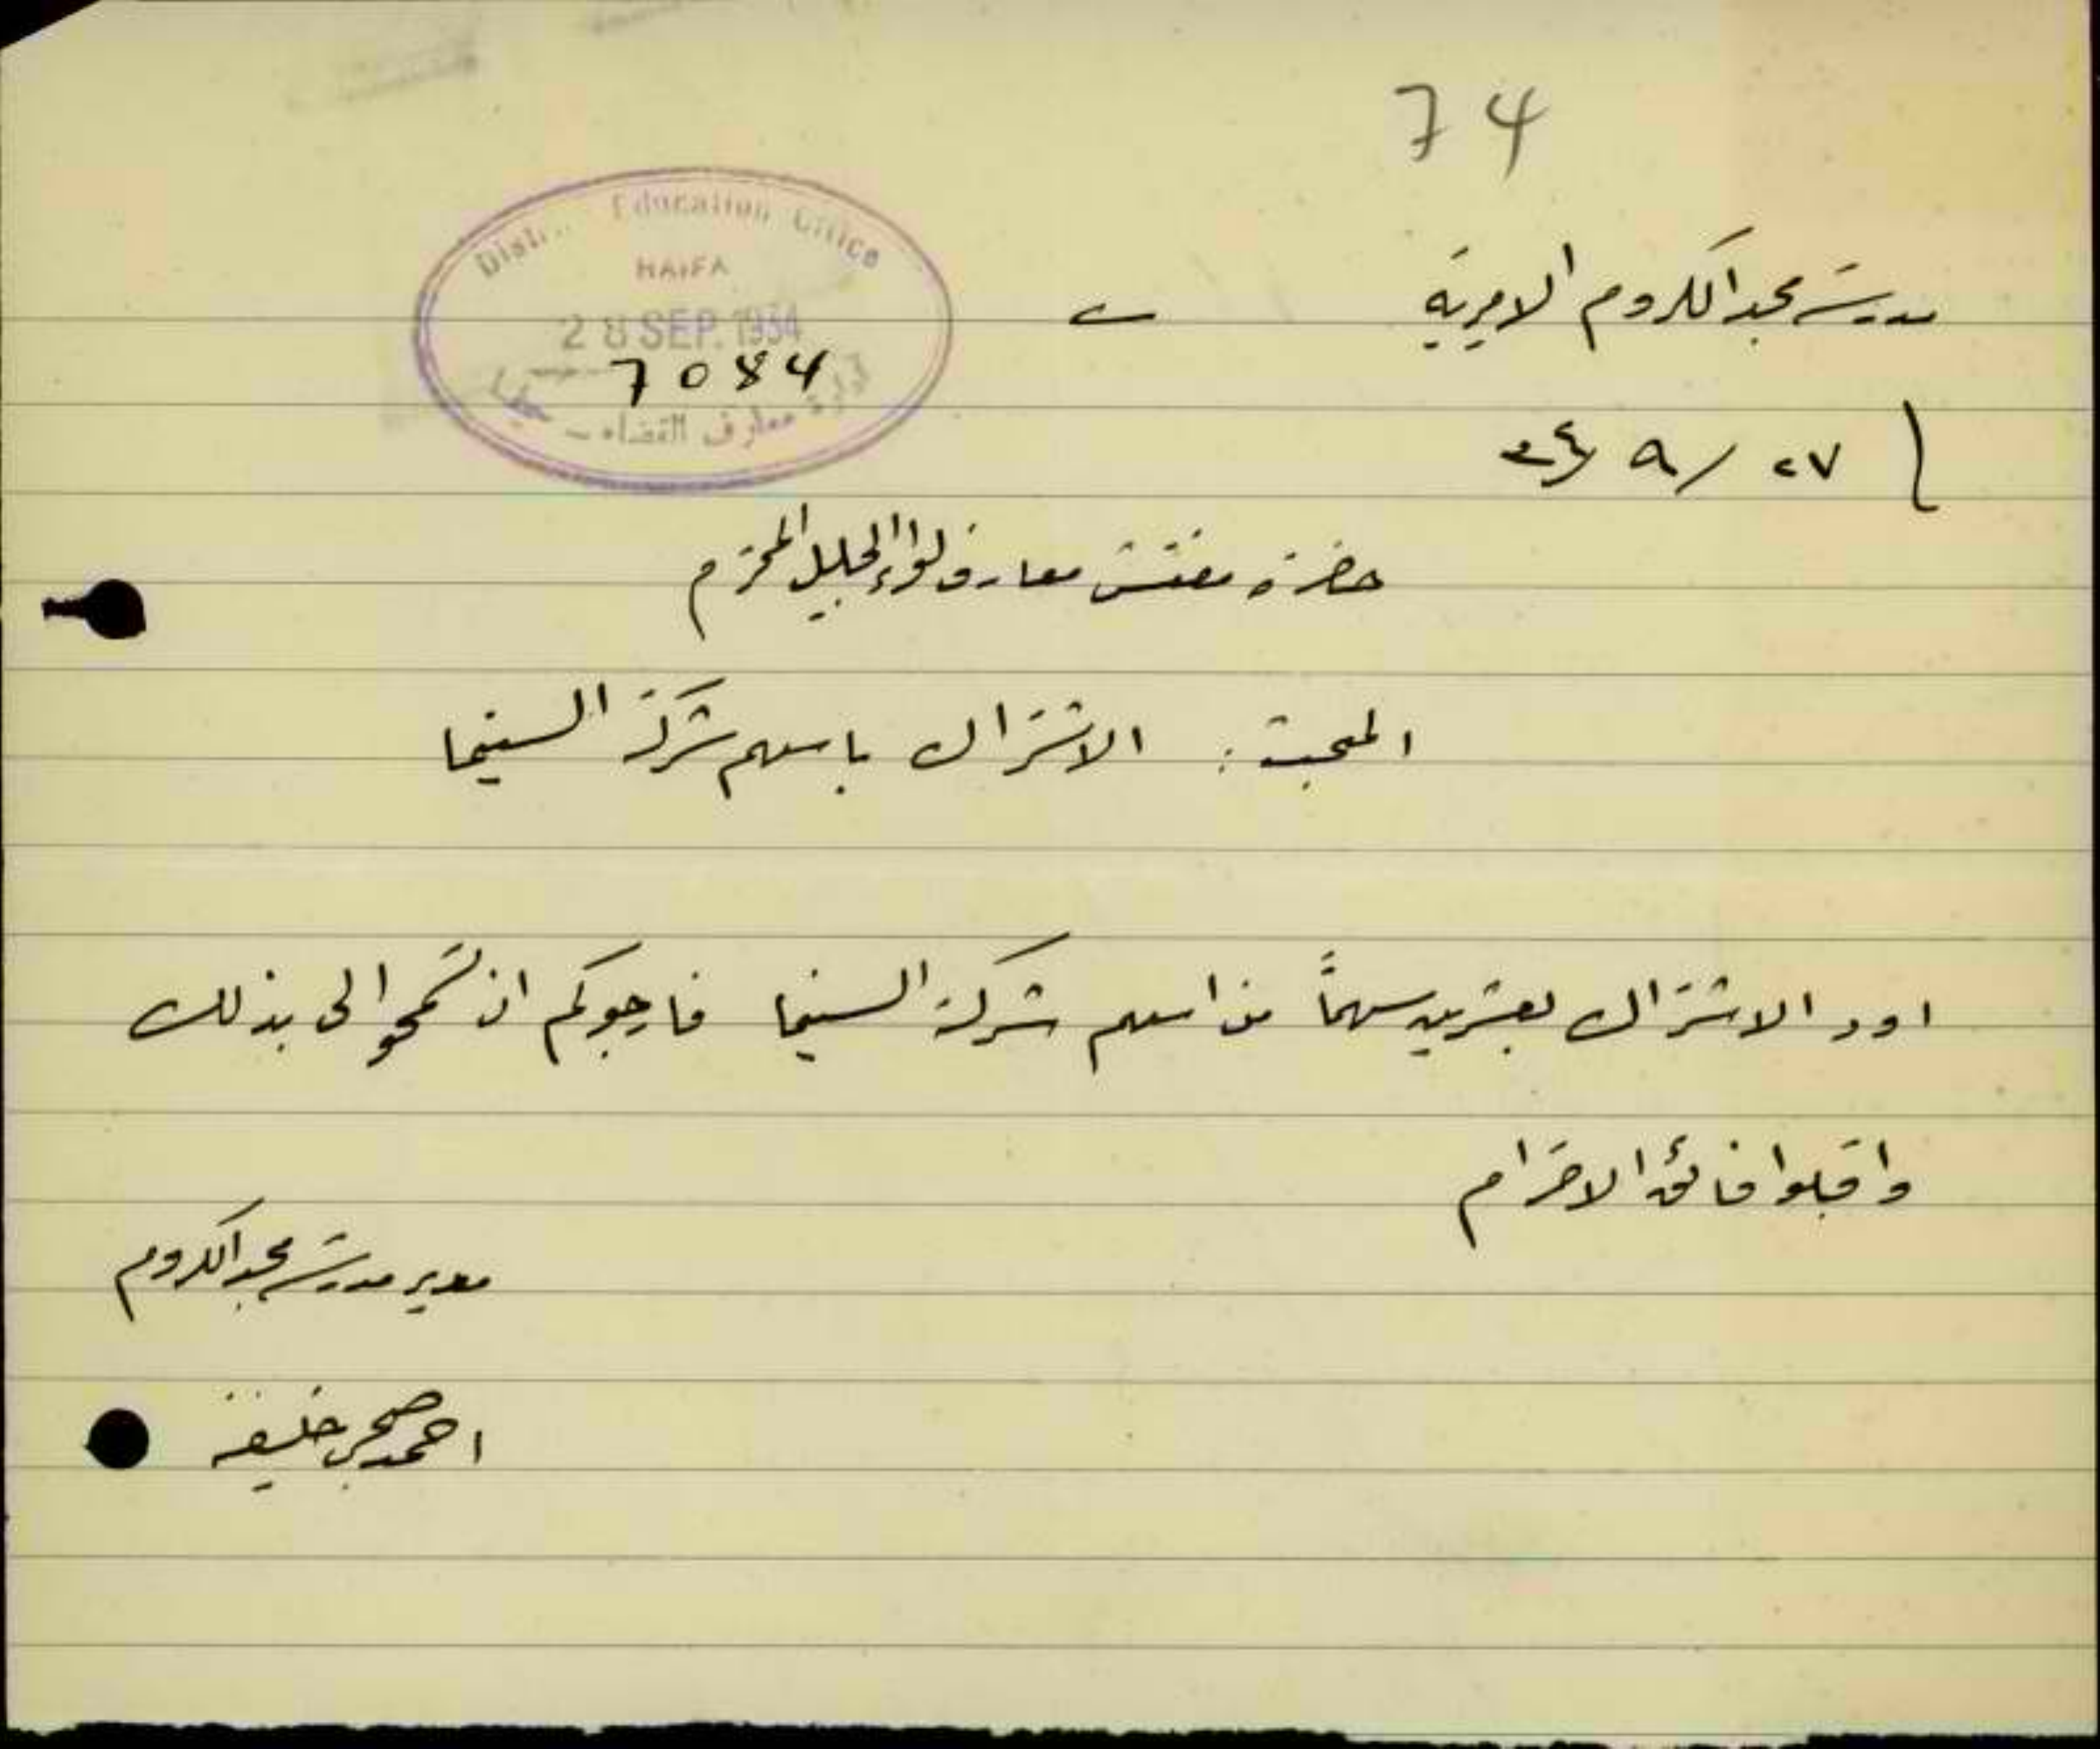 74
District Education Office
HAIFA
28 SEP. 1934
7084
ادارة معارف القضاء - حيفا
مدرسة مجد الكروم الاميرية
٢٧ / ٩ / ٣٤
حضرة مفتش معارف لواء الجليل المحترم
المبحث : الاشتراك باسهم شركة السينما
اود الاشتراك بعشرين سهماً من اسهم شركة السينما فارجوكم ان تسمحوا لي بذلك
واقبلوا فائق الاحترام
مدير مدرسة مجد الكروم
احمد صبحي خليفة